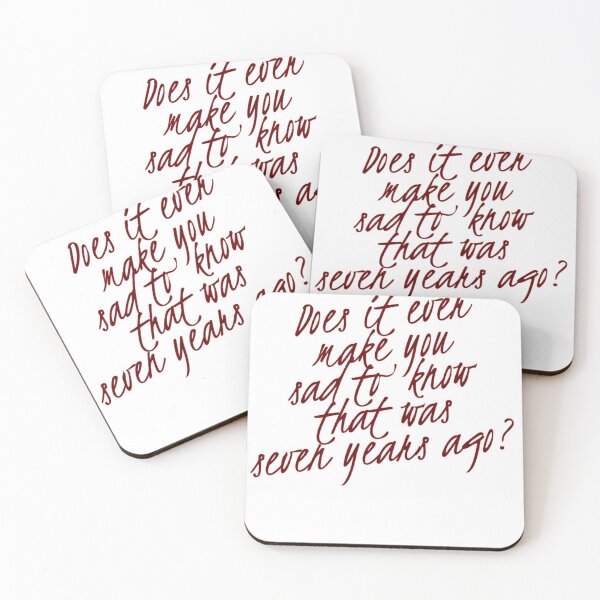 Does it ever
make you
sad to know
was
Does it ever
make you
sad to know
that was
seven years ago?
Does it ever
make you
sad to know
that was
seven years ago?
Does it ever
make you
sad to know
that was
seven years ago?